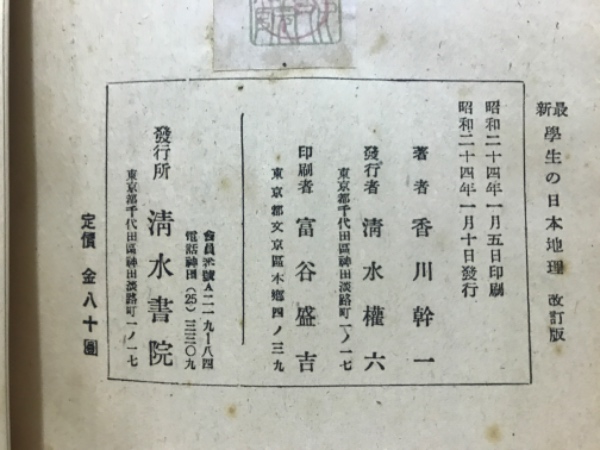 最新 學生の日本地理 改訂版
昭和二十四年一月五日印刷
昭和二十四年一月十日發行
著者 香川幹一
發行者 淸水權六
東京都千代田區神田淡路町一ノ一七
印刷者 富谷盛吉
東京都文京區本鄕四ノ三九
會員番號A二一九一八四
電話神田(25)三三〇九
發行所 淸水書院
東京都千代田區神田淡路町一ノ一七
定價 金八十圓